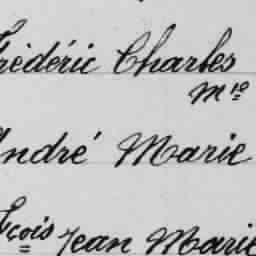 Frédéric Charles
Mie
André Marie
Fçois Jean Marie